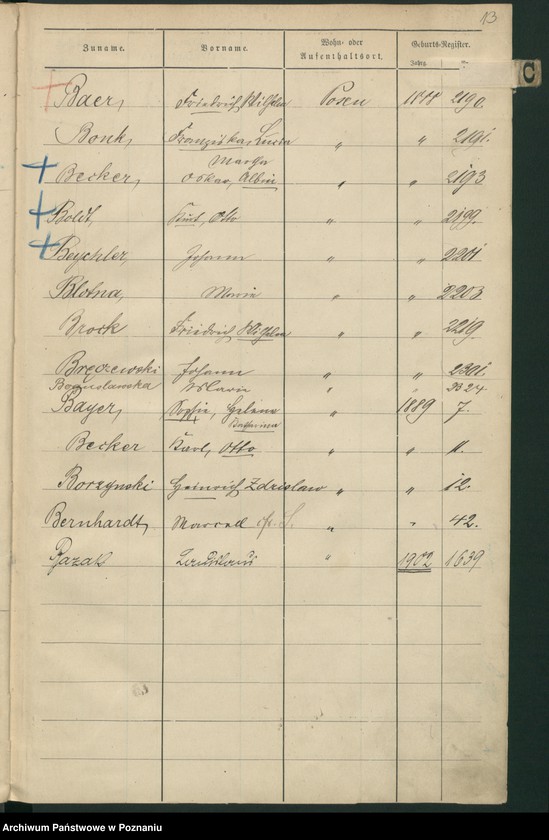 13
Zuname. Vorname. Wohn- oder Aufenthaltsort. Geburts-Register.
Jahrg. Nr.
C
Baer, Friedrich Wilhelm Posen 1888 2190.
Bonk, Franziska, Lucia " " 2191.
Becker, Oskar, Albin " " 2193
Boldt, Kurt, Otto " " 2199.
Beychler, Johann " " 2201
Blotna, Marie " " 2203.
Brock Friedrich Wilhelm " " 2219.
Johann " " 2301.
Boguslawska " " 2324.
Bayer, Sophie, Helene " 1889 7.
Katharina
Becker Karl, Otto " " 11.
Borzynski Heinrich Zdzislaw " " 12.
Bernhardt, Marcell " " 42.
" 1902 1639
Archiwum Państwowe w Poznaniu